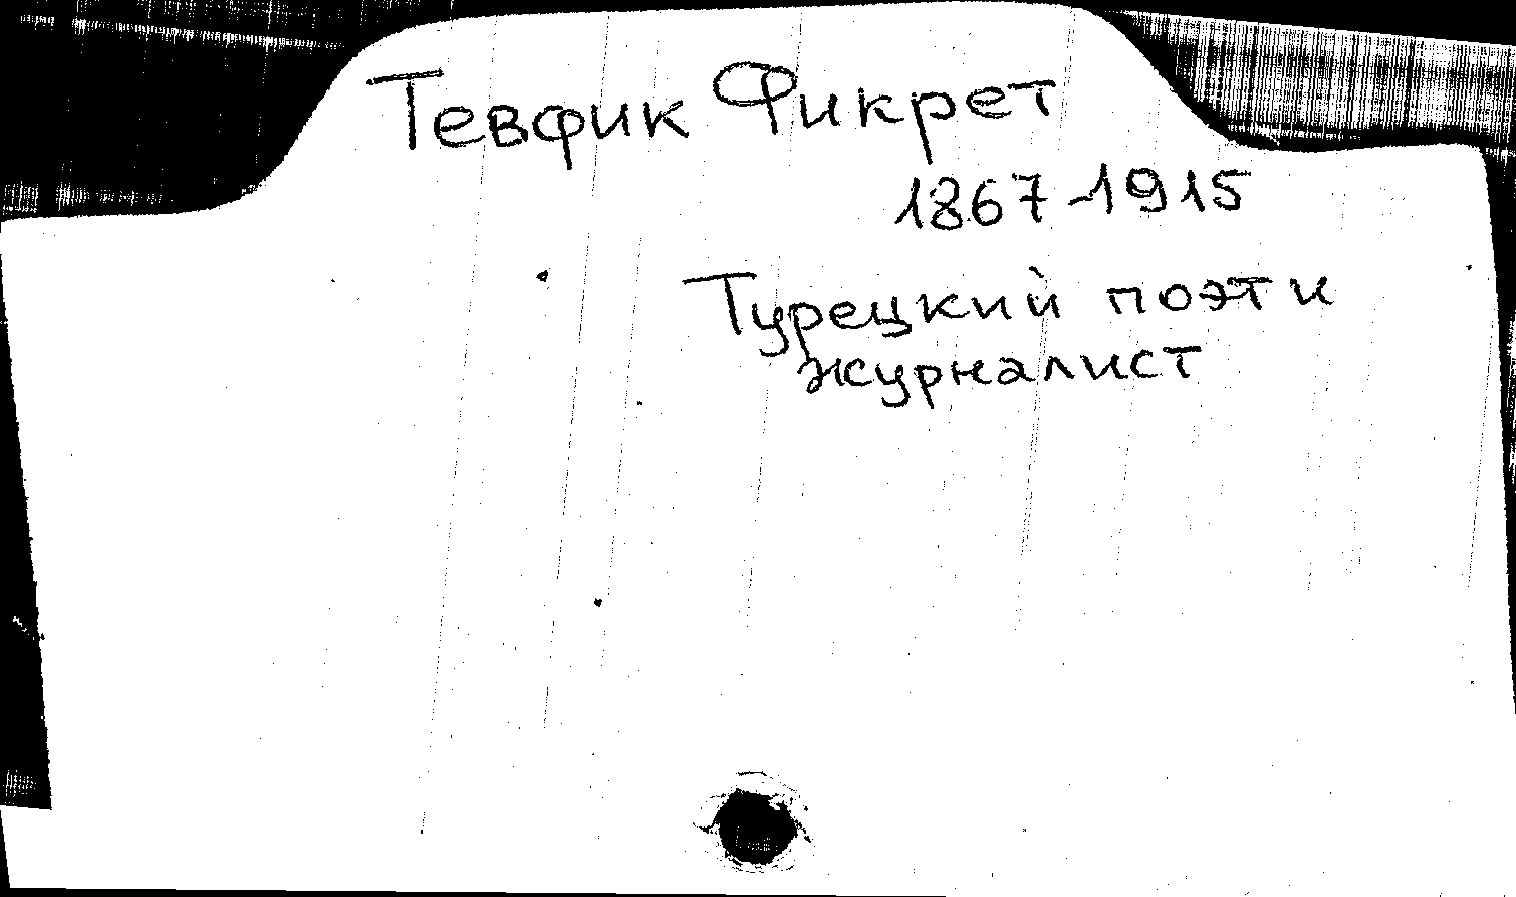 Тевфик Фикрет
1867-1915
Турецкий поэт и
журналист